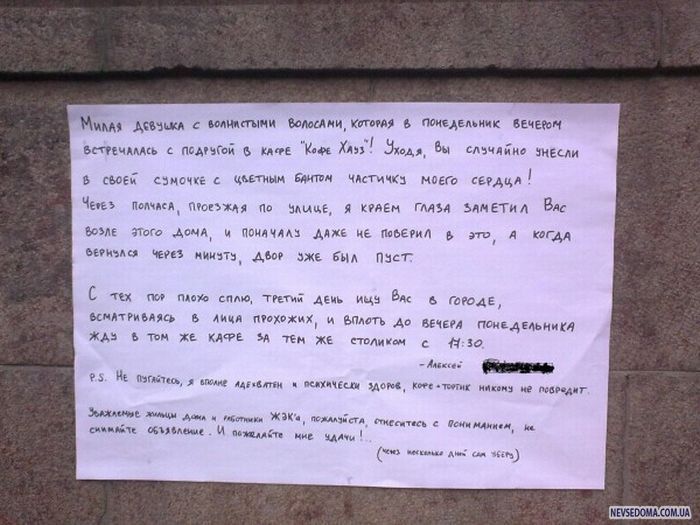 Милая девушка с волнистыми волосами, которая в понедельник вечером
встречалась с подругой в кафе "Кофе Хауз"! Уходя, Вы случайно унесли
в своей сумочке с цветным бантом частичку моего сердца!
Через полчаса, проезжая по улице, я краем глаза заметил Вас
возле этого дома, и поначалу даже не поверил в это, а когда
вернулся через минуту, двор уже был пуст.
С тех пор плохо сплю, третий день ищу Вас в городе,
всматриваясь в лица прохожих, и вплоть до вечера понедельника
жду в том же кафе за тем же столиком с 17:30.
-Алексей
P.S. Не пугайтесь, я вполне адекватен и психически здоров, кофе+тортик никому не повредит.
Уважаемые жильцы дома и работники ЖЭК'а, пожалуйста, отнеситесь с пониманием, не
снимайте объявление. И пожелайте мне удачи!..
(через несколько дней сам уберу)
NEVSEDOMA.COM.UA